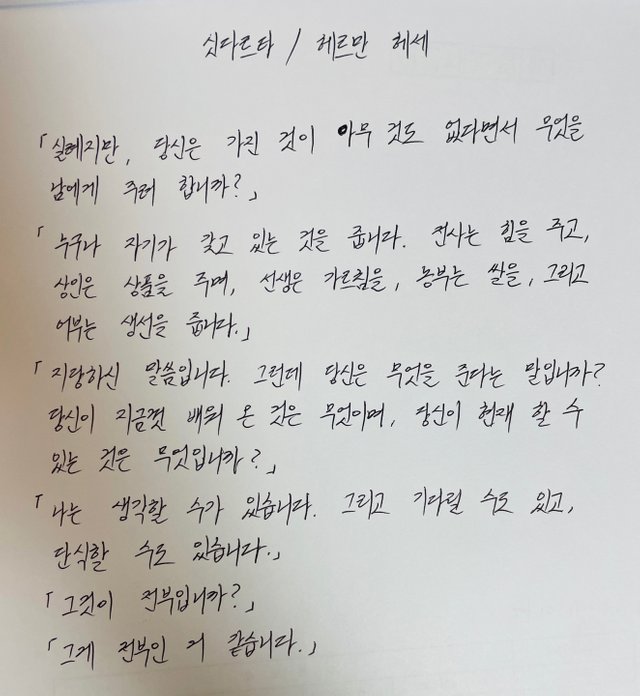 싯다르타 / 헤르만 헤세
「실례지만, 당신은 가진 것이 아무 것도 없다면서 무엇을
남에게 주려 합니까?」
「누구나 자기가 갖고 있는 것을 줍니다. 전사는 힘을 주고,
상인은 상품을 주며, 선생은 가르침을, 농부는 쌀을, 그리고
어부는 생선을 줍니다.」
「지당하신 말씀입니다. 그런데 당신은 무엇을 준다는 말입니까?
당신이 지금껏 배워 온 것은 무엇이며, 당신이 현재 할 수
있는 것은 무엇입니까?」
「나는 생각할 수가 있습니다. 그리고 기다릴 수도 있고,
단식할 수도 있습니다.」
「그것이 전부입니까?」
「그게 전부인 거 같습니다.」